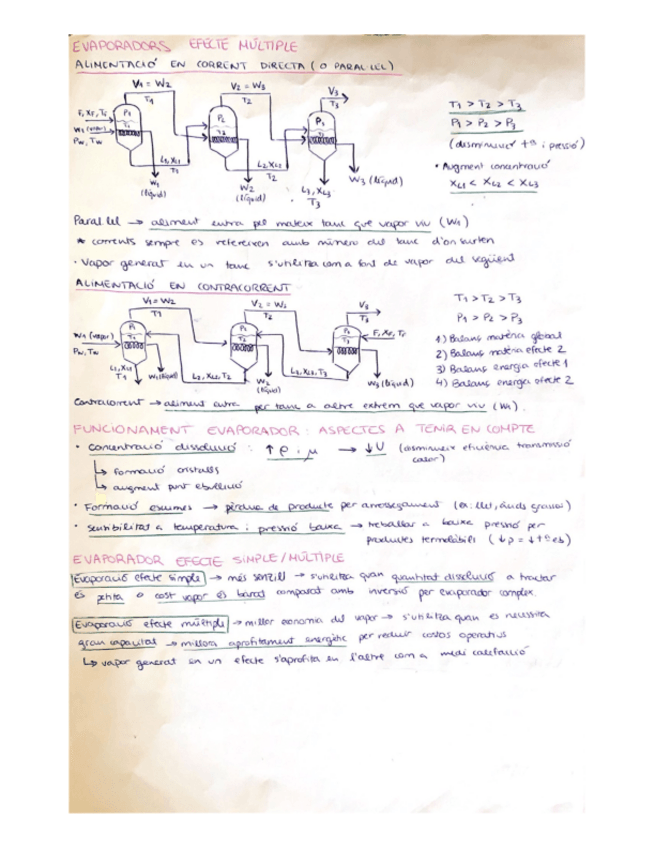 EVAPORADORS EFECTE MÚLTIPLE
ALIMENTACIÓ EN CORRENT DIRECTA (O PARAL·LEL)
V1 = W2
T1
V2 = W3
T2
V3
T3
F, XF, TF
W1 (vapor)
PW, TW
P1
T1
P2
T2
P1
T3
L1, XL1
T1
L2, XL2
T2
W1
(líquid)
W2
(líquid)
L3, XL3
T3
W3 (líquid)
T1 > T2 > T3
P1 > P2 > P3
(disminució tª i pressió)
• Augment concentració
XL1 < XL2 < XL3
Paral·lel → aliment entra pel mateix tanc que vapor viu (W1)
* corrents sempre es refereixen amb número del tanc d'on surten
• Vapor generat en un tanc s'utilitza com a font de vapor del següent
ALIMENTACIÓ EN CONTRACORRENT
V1 = W2
T1
V2 = W3
T2
V3
T3
W1 (vapor)
PW, TW
P1
F, XF, TF
L1, XL1
T1
W1 (líquid)
L2, XL2, T2
W2
(líquid)
L3, XL3, T3
W3 (líquid)
T1 > T2 > T3
P1 > P2 > P3
1) Balanç matèria global
2) Balanç matèria efecte 2
3) Balanç energia efecte 1
4) Balanç energia efecte 2
Contracorrent → aliment entra per tanc a altre extrem que vapor viu (W1).
FUNCIONAMENT EVAPORADOR: ASPECTES A TENIR EN COMPTE
• Concentració dissolució : ↑ ρ i μ → ↓ U (disminueix eficiència transmissió
calor)
↳ formació cristalls
↳ augment punt ebullició
• Formació escumes → pèrdua de producte per arrossegament (ex: llet, àcids grassos)
• Sensibilitat a temperatura i pressió baixa → treballar a baixa pressió per
productes termolàbils (↓p = ↓tª eb)
EVAPORADOR EFECTE SIMPLE/MÚLTIPLE
Evaporació efecte simple → més senzill → s'utilitza quan quantitat dissolució a tractar
és petita o cost vapor és barat comparat amb inversió per evaporador complex.
Evaporació efecte múltiple → millor economia del vapor → s'utilitza quan es necessita
gran capacitat → millora aprofitament energètic per reduir costos operatius
↳ vapor generat en un efecte s'aprofita en l'altre com a medi calefacció